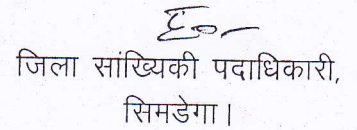 ह०—
जिला सांख्यिकी पदाधिकारी,
सिमडेगा।